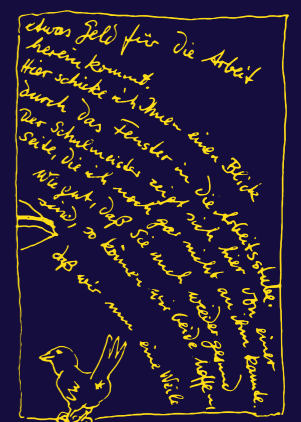 etwas Geld für die Arbeit
hereinkommt.
Hier schicke ich Ihnen einen Blick
durch das Fenster in die Arbeitsstube.
Der Schulmeister zeigt sich hier von einer
Seite, die ich noch gar nicht an ihm kannte.
Wie gut, daß Sie auch wieder gesund
sind, so können wir beide hoffen,
daß wir nun eine Weile